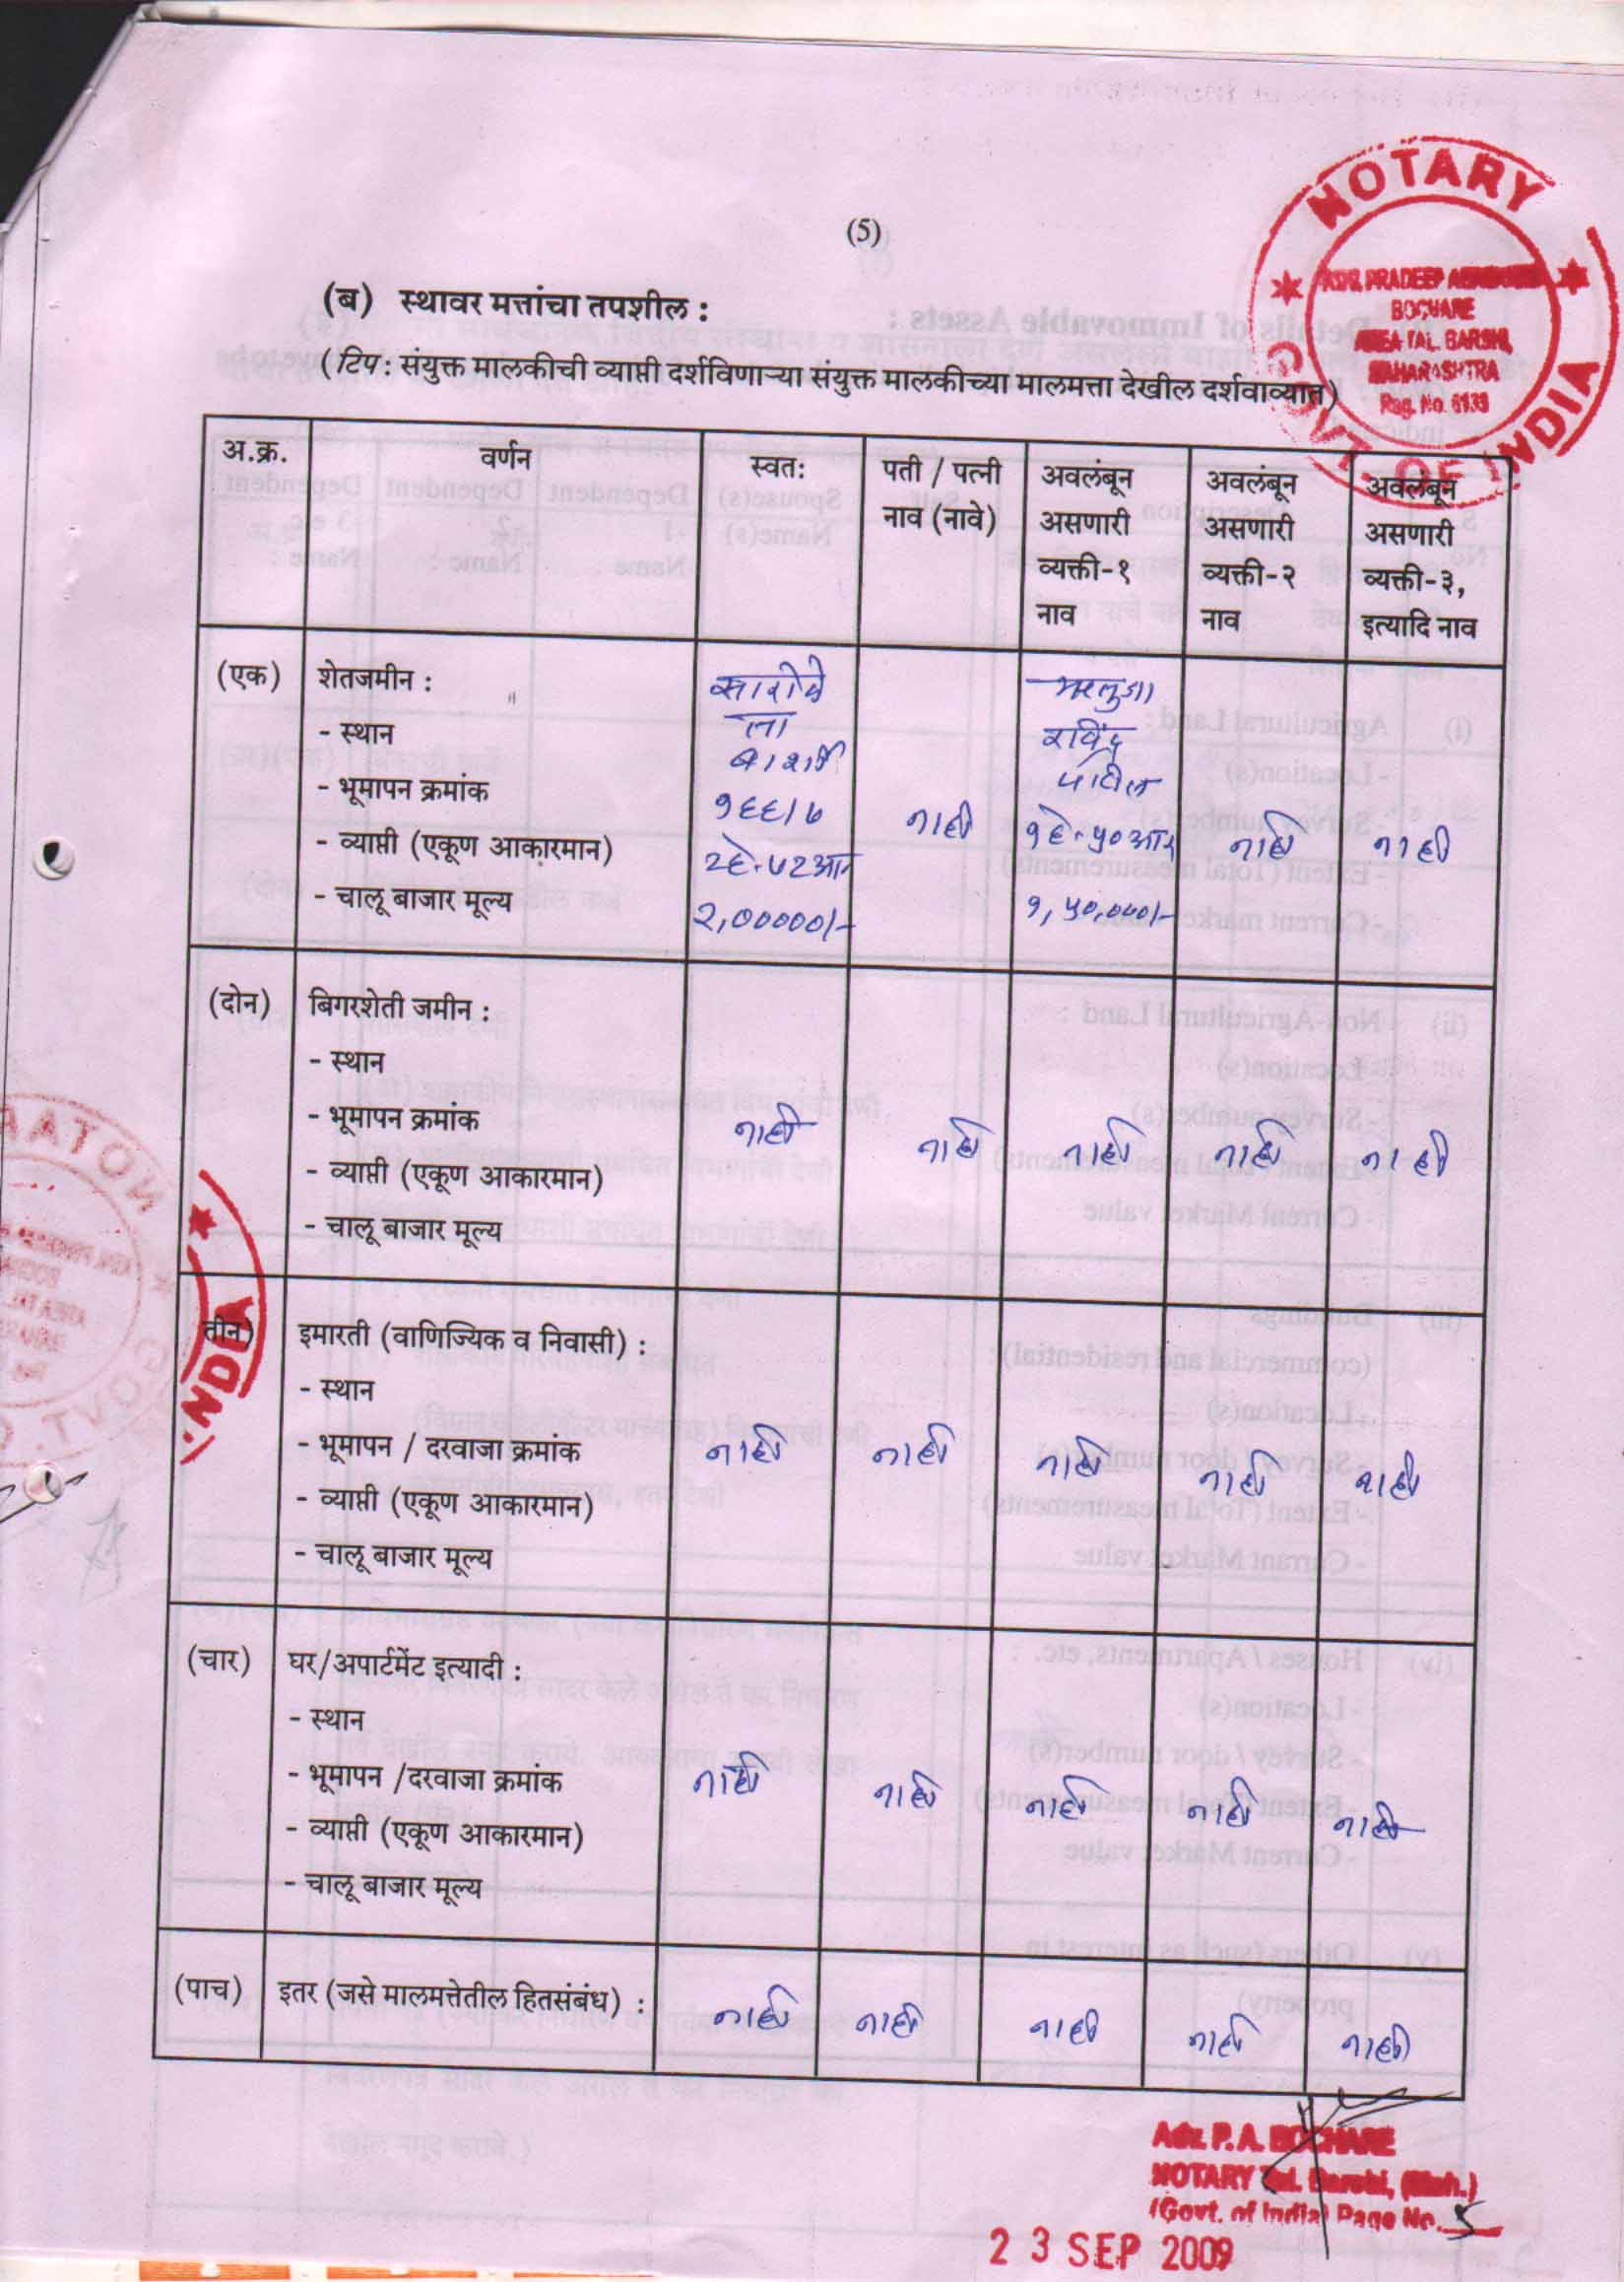 (5)
NOTARY
GOVT. OF INDIA
BOCHARE
TAL. BARSHI,
MAHARASHTRA
Reg. No.
(ब) स्थावर मत्तांचा तपशील :
(टिप : संयुक्त मालकीची व्याप्ती दर्शविणाऱ्या संयुक्त मालकीच्या मालमत्ता देखील दर्शवाव्यात)
अ.क्र. वर्णन स्वत: पती / पत्नी अवलंबून अवलंबून अवलंबून
नाव (नावे) असणारी असणारी असणारी
व्यक्ती-१ व्यक्ती-२ व्यक्ती-३,
नाव नाव इत्यादि नाव
(एक) शेतजमीन :
- स्थान ता रविंद्र
बार्शी पाटील
- भूमापन क्रमांक १६६/७ नाही नाही नाही
- व्याप्ती (एकूण आकारमान) २हे.७२आर १हे.५०आर
- चालू बाजार मूल्य २,०००००/- १,५०,०००/-
(दोन) बिगरशेती जमीन :
- स्थान
- भूमापन क्रमांक नाही नाही नाही नाही नाही
- व्याप्ती (एकूण आकारमान)
- चालू बाजार मूल्य
तीन) इमारती (वाणिज्यिक व निवासी) :
- स्थान
- भूमापन / दरवाजा क्रमांक नाही नाही नाही नाही नाही
- व्याप्ती (एकूण आकारमान)
- चालू बाजार मूल्य
(चार) घर/अपार्टमेंट इत्यादी :
- स्थान
- भूमापन /दरवाजा क्रमांक नाही नाही नाही नाही नाही
- व्याप्ती (एकूण आकारमान)
- चालू बाजार मूल्य
(पाच) इतर (जसे मालमत्तेतील हितसंबंध) : नाही नाही नाही नाही नाही
INDIA
Adv. P.A. BOCHARE
NOTARY Tal. Barshi, (Mah.)
(Govt. of India) Page No. 5
23 SEP 2009